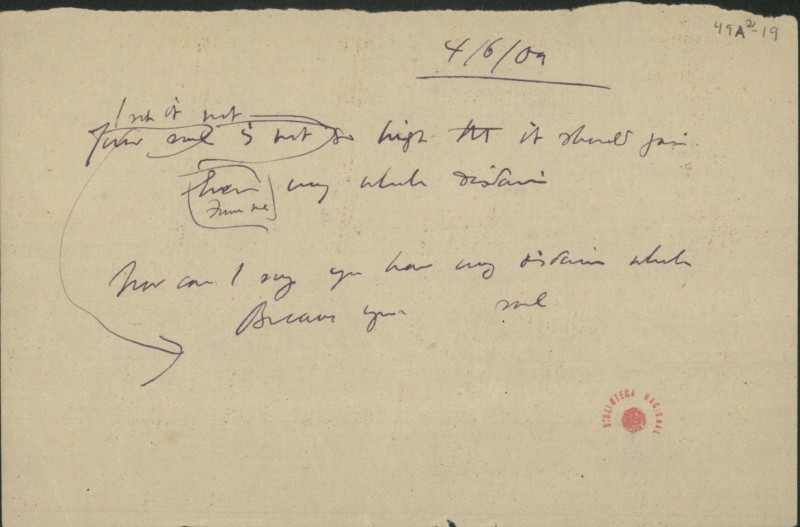 49A²-19
4/6/09
is it not
Your soul is not so high that it should gain
from me
my whole disdain
Nor can I say you have my disdain whole
Because your soul
BIBLIOTECA NACIONAL